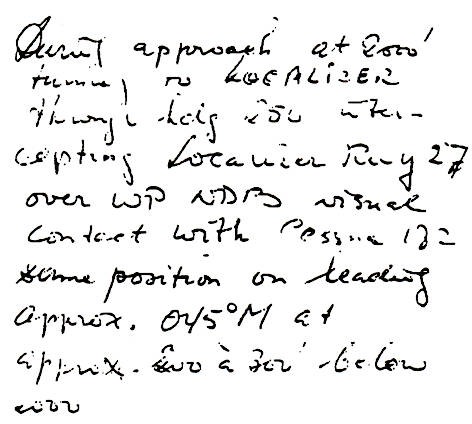 During approach at 2000'
turning to LOCALIZER
through hdg 250 inter-
cepting Localizer Rwy 27
over WP NDB visual
contact with Cessna 182
same position on heading
approx. 045°M at
approx. 200 à 300' below